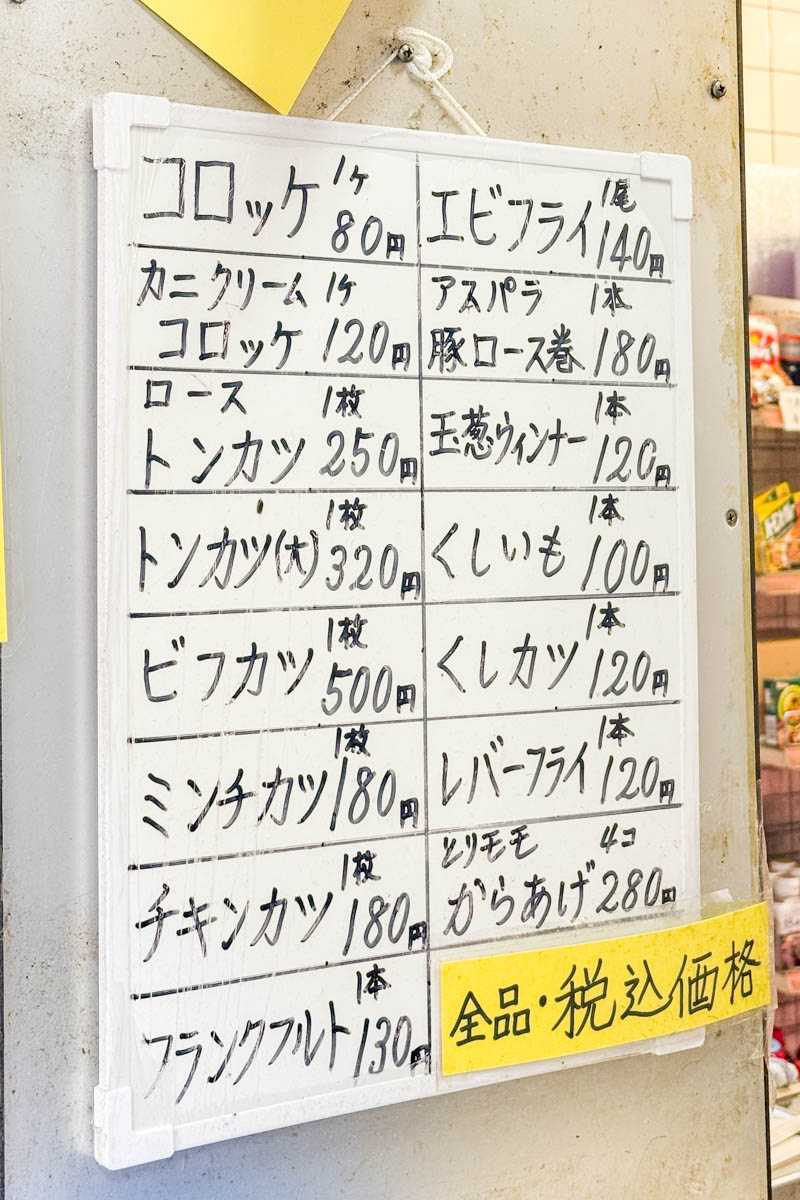 コロッケ 1ケ
80円
カニクリーム 1ケ
コロッケ 120円
ロース 1枚
トンカツ 250円
トンカツ(大) 1枚
320円
ビフカツ 1枚
500円
ミンチカツ 1枚
180円
チキンカツ 1枚
180円
フランクフルト 1本
130円
エビフライ 1尾
140円
アスパラ 1本
豚ロース巻 180円
玉葱ウィンナー 1本
120円
くしいも 1本
100円
くしカツ 1本
120円
レバーフライ 1本
120円
とりモモ 4コ
からあげ 280円
全品・税込価格